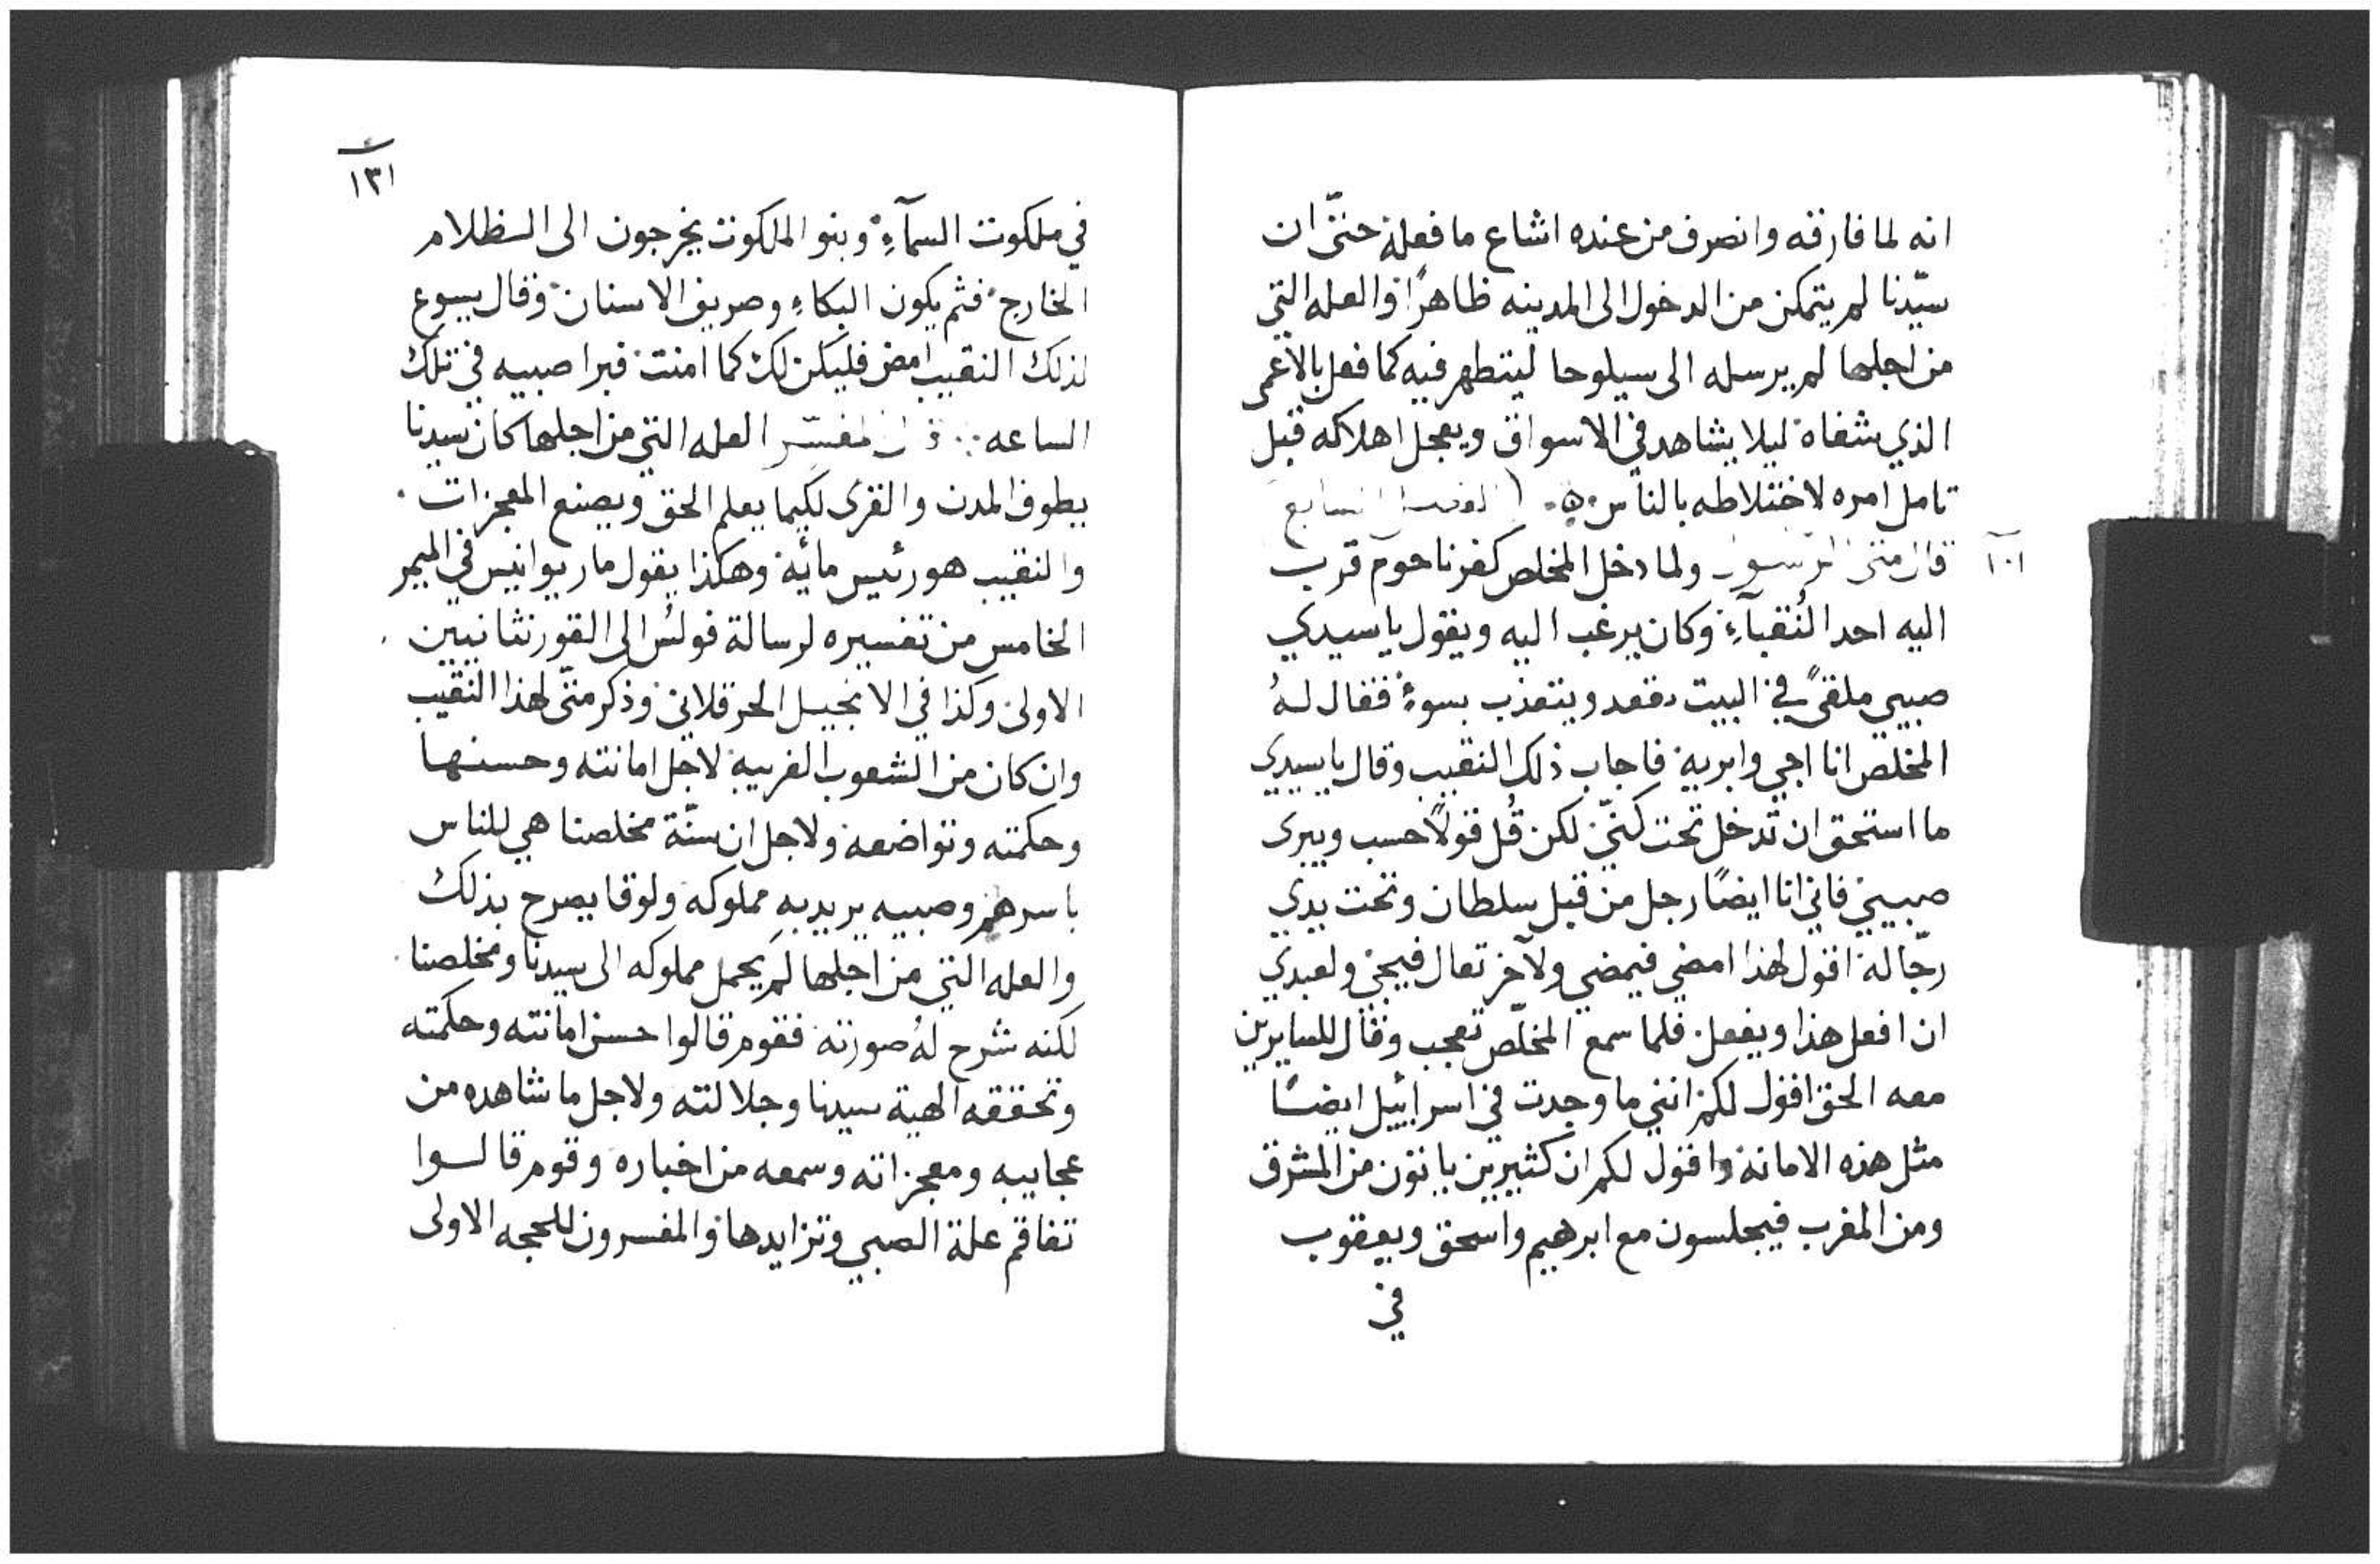 انه لما فارقه وانصرف من عنده اشاع ما فعله حتّى ان
سيّدنا لم يتمكن من الدخول الى المدينه ظاهرًا والعله التي
من اجلها لم يرسله الى سيلوحا ليتطهر فيه كما فعل بالاعمى
الذي شفاه ليلا يشاهد في الاسواق ويعجل اهلاكه قبل
تامل امره لاختلاطه بالناس
قال متى الرسول ولما دخل المخلص كفرناحوم قرب
اليه احد النُقبآءِ وكان يرغب اليه ويقول يا سيدي
صبيي ملقىً في البيت مقعد ويتعذب بسوءٍ فقال لهُ
المخلص انا اجي وابريه فاجاب ذلك النقيب وقال يا سيدي
ما استحق ان تدخل تحت كنّي لكن قُل قولاً حسب ويبرى
صبيي فاني انا ايضًا رجل من قبل سلطان وتحت يدي
رجّاله اقول لهذا امضي فيمضي ولآخر تعال فيجي ولعبدي
ان افعل هذا ويفعل فلما سمع المخلّص تعجب وقال للسايرين
معه الحق اقول لكم انني ما وجدت في اسراييل ايضًا
مثل هذه الامانه واقول لكم ان كثيرين ياتون من المشرق
ومن المغرب فيجلسون مع ابرهيم واسحق ويعقوب
في
١٣١
في ملكوت السمآءِ وبنو الملكوت يخرجون الى الظلام
الخارج فثم يكون البكاءِ وصريف الاسنان وقال يسوع
لذلك النقيب امض فليكن لك كما امنت فبرا صبيه في تلك
الساعه قال المفسّر العله التي من اجلها كان سيدنا
يطوف المدن والقرى لكيما يعلم الحق ويصنع المعجزات
والنقيب هو رئيس مائه وهكذا يقول مار يوانيس في الميمر
الخامس من تفسيره لرسالة فولس الى القورنثانيين
الاولى وكذا في الانجيل الحرقلاني وذكر متّى لهذا النقيب
وان كان من الشعوب الغريبه لاجل امانته وحسنها
وحكمته وتواضعه ولاجل ان سنّة مخلصنا هي للناس
باسرهم وصبيه يريد به مملوكه ولوقا يصرح بذلك
والعله التي من اجلها لم يحمل مملوكه الى سيدنا ومخلصنا
لكنه شرح لهُ صورته فقوم قالوا حسن امانته وحكمته
وتحققه الهية سيدنا وجلالته ولاجل ما شاهده من
عجاييه ومعجزاته وسمعه من اخباره وقوم قالوا
تفاقم علة الصبي وتزايدها والمفسرون للحجه الاولى